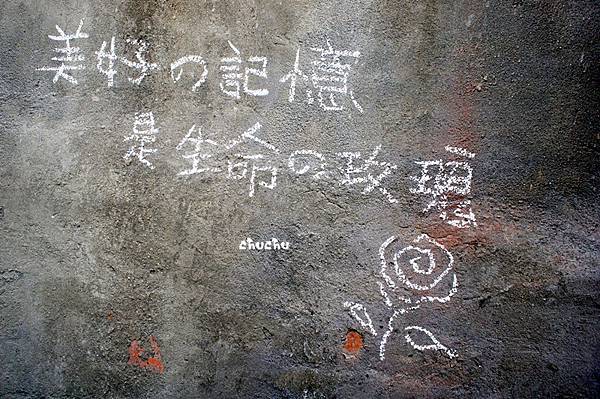 美好の記憶
是生命の玫瑰
chuchu